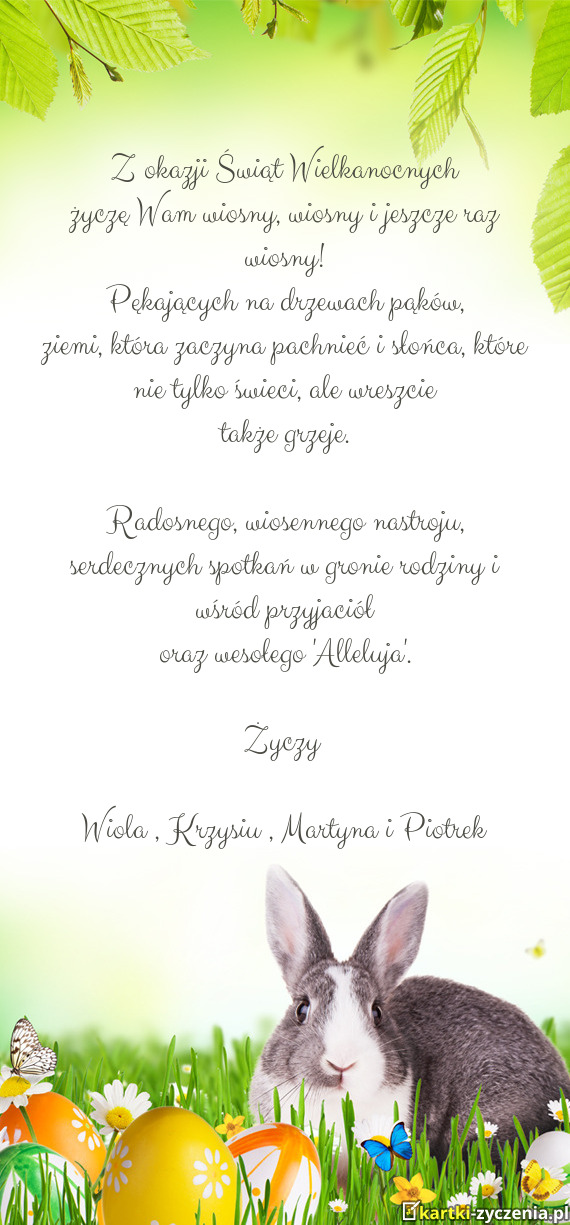 Z okazji Świąt Wielkanocnych
życzę Wam wiosny, wiosny i jeszcze raz
wiosny!
Pękających na drzewach pąków,
ziemi, która zaczyna pachnieć i słońca, które
nie tylko świeci, ale wreszcie
także grzeje.
Radosnego, wiosennego nastroju,
serdecznych spotkań w gronie rodziny i
wśród przyjaciół
oraz wesołego 'Alleluja'.
Życzy
Wiola , Krzysiu , Martyna i Piotrek
kartki-zyczenia.pl